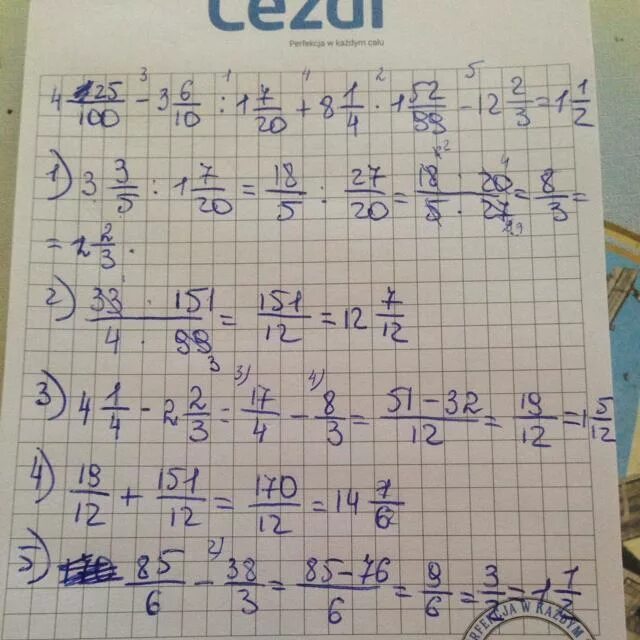 Lezdi
Perfekcja w każdym calu
4 25/100 - 3 6/10 : 1 7/20 + 8 1/4 · 1 52/99 - 12 2/3 = 1 1/2
1) 3 3/5 : 1 7/20 = 18/5 : 27/20 = 18 · 20 / 5 · 27 = 8/3 =
= 2 2/3 .
2) 33 · 151 / 4 · 99 = 151/12 = 12 7/12
3) 4 1/4 - 2 2/3 = 17/4 - 8/3 = 51-32/12 = 19/12 = 1 5/12
4) 19/12 + 151/12 = 170/12 = 14 1/6
5) 85/6 - 38/3 = 85-76/6 = 9/6 = 3/2 = 1 1/2
PERFEKCJA W KAŻDYM